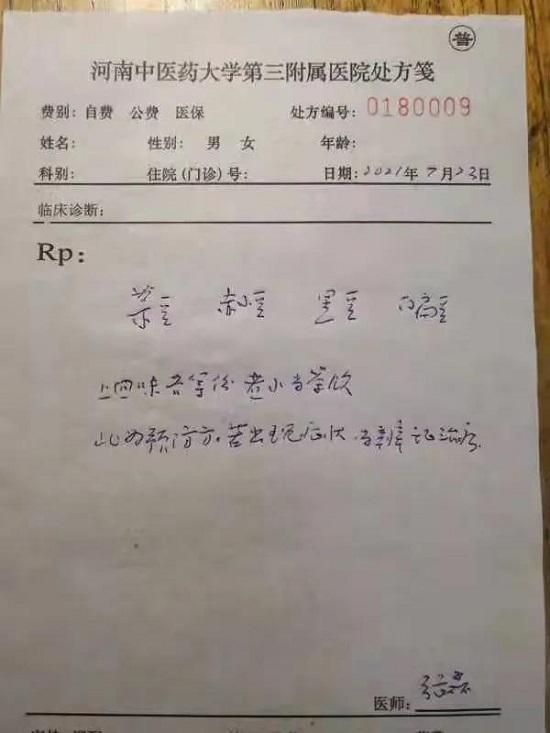 普
河南中医药大学第三附属医院处方笺
费别：自费 公费 医保 处方编号：0180009
姓名： 性别：男 女 年龄：
科别： 住院(门诊)号： 日期：2021年7月23日
临床诊断：
Rp：
菉豆 赤小豆 黑豆 白扁豆
上四味各等份 煮水当茶饮
此为预防方，若出现症状，当辨证治疗
医师：张磊